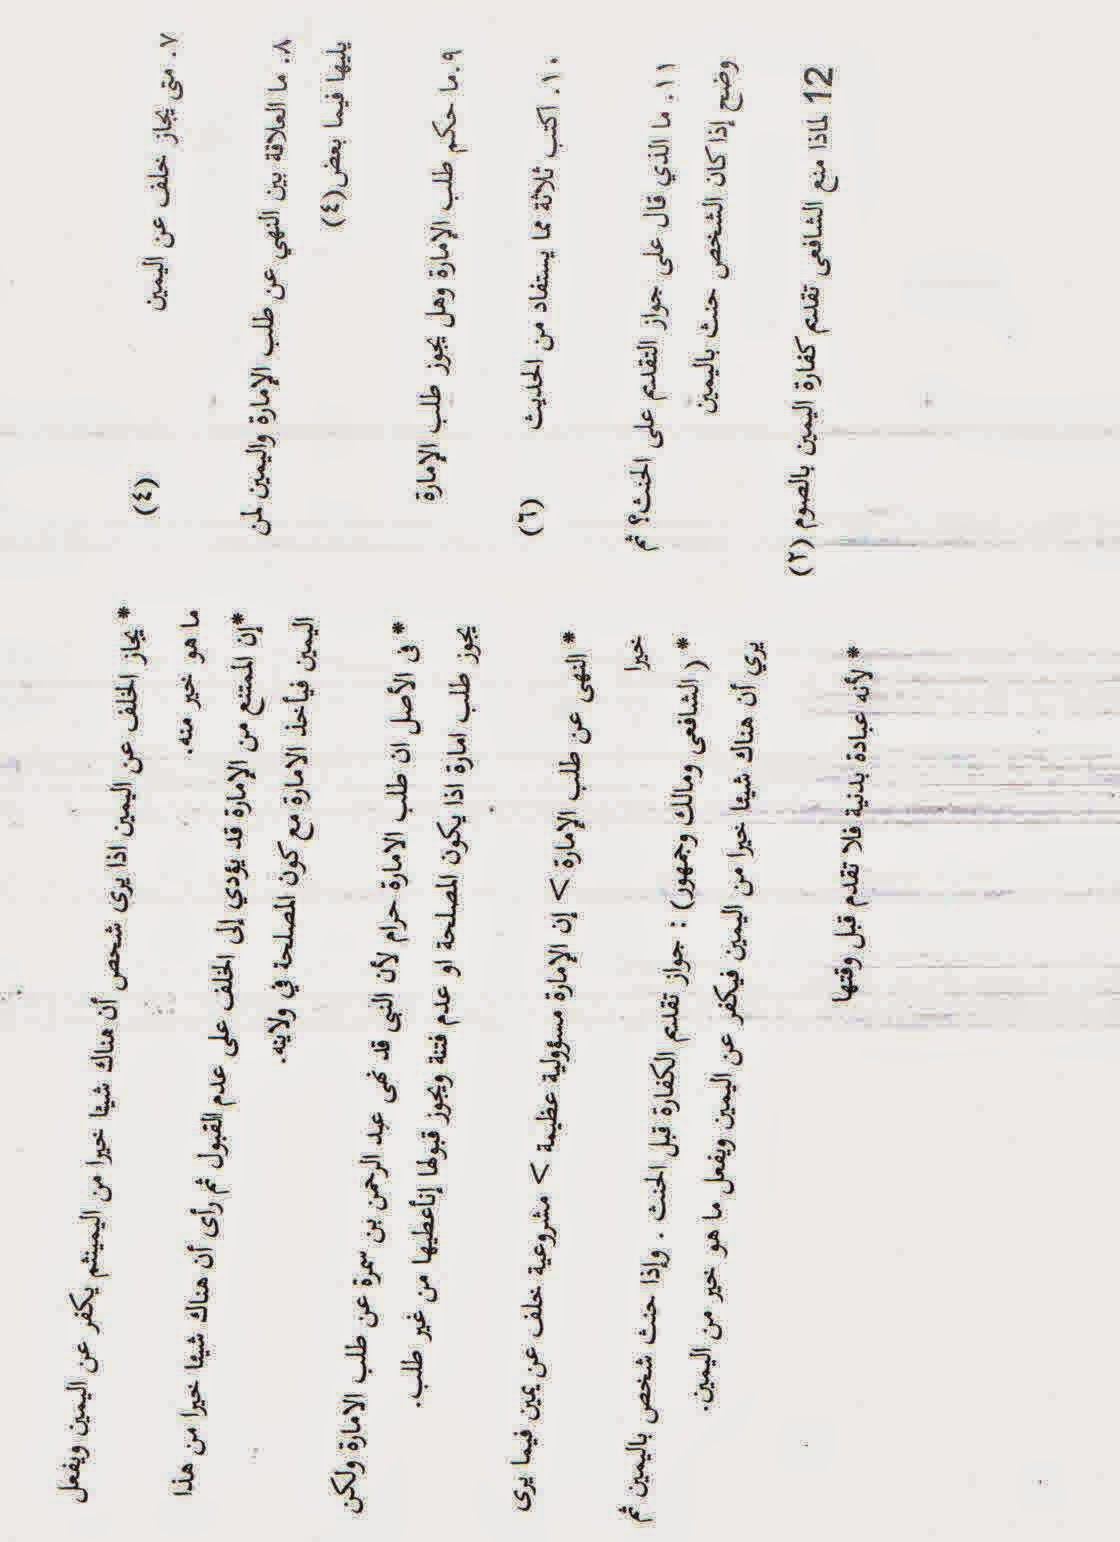 ٧. متى يجاز خلف عن اليمين (٤)
* يجاز الخلف عن اليمين اذا يرى شخص أن هناك شيئا خيرا من اليمينثم يكفر عن اليمين ويفعل
ما هو خير منه.
٨. ما العلاقة بين النهي عن طلب الإمارة واليمين لمن
يليها فيما بعض(٤)
*إن الممتنع من الإمارة قد يؤدي إلى الخلف على عدم القبول ثم رأى أن هناك شيئا خيرا من هذا
اليمين فيأخذ الامارة مع كون المصلحة في ولايته.
٩.ما حكم طلب الإمارة وهل يجوز طلب الإمارة
* فى الأصل ان طلب الامارة حرام لأن النبى قد نهى عبد الرحمن بن سمرة عن طلب الامارة ولكن
يجوز طلب امارة اذا يكون المصلحة او عدم فتنة ويجوز قبولها إنأعطيها من غير طلب.
١٠. اكتب ثلاثة مما يستفاد من الحديث (٦)
* النهى عن طلب الإمارة > إن الإمارة مسؤولية عظيمة > مشروعية خلف عن يمين فيما يرى
خيرا
١١. ما الذي قال على جواز التقديم على الحنث؟ ثم
وضح إذا كان الشخص حنث باليمين
* ( الشافعى ومالك وجمهور) : جواز تقديم الكفارة قبل الحنث . وإذا حنث شخص باليمين ثم
يري أن هناك شيئا خيرا من اليمين فيكفر عن اليمين ويفعل ما هو خير من اليمين.
12 لماذا منع الشافعى تقديم كفارة اليمين بالصوم (٢)
* لأنه عبادة بدنية فلا تقدم قبل وقتها